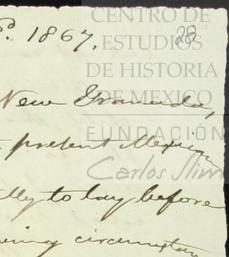 CENTRO DE
ESTUDIOS
DE HISTORIA
DE MEXICO
FUNDACIÓN
Carlos Slim
28
1867.
New Granada,
present Mexican
to lay before
circumstan